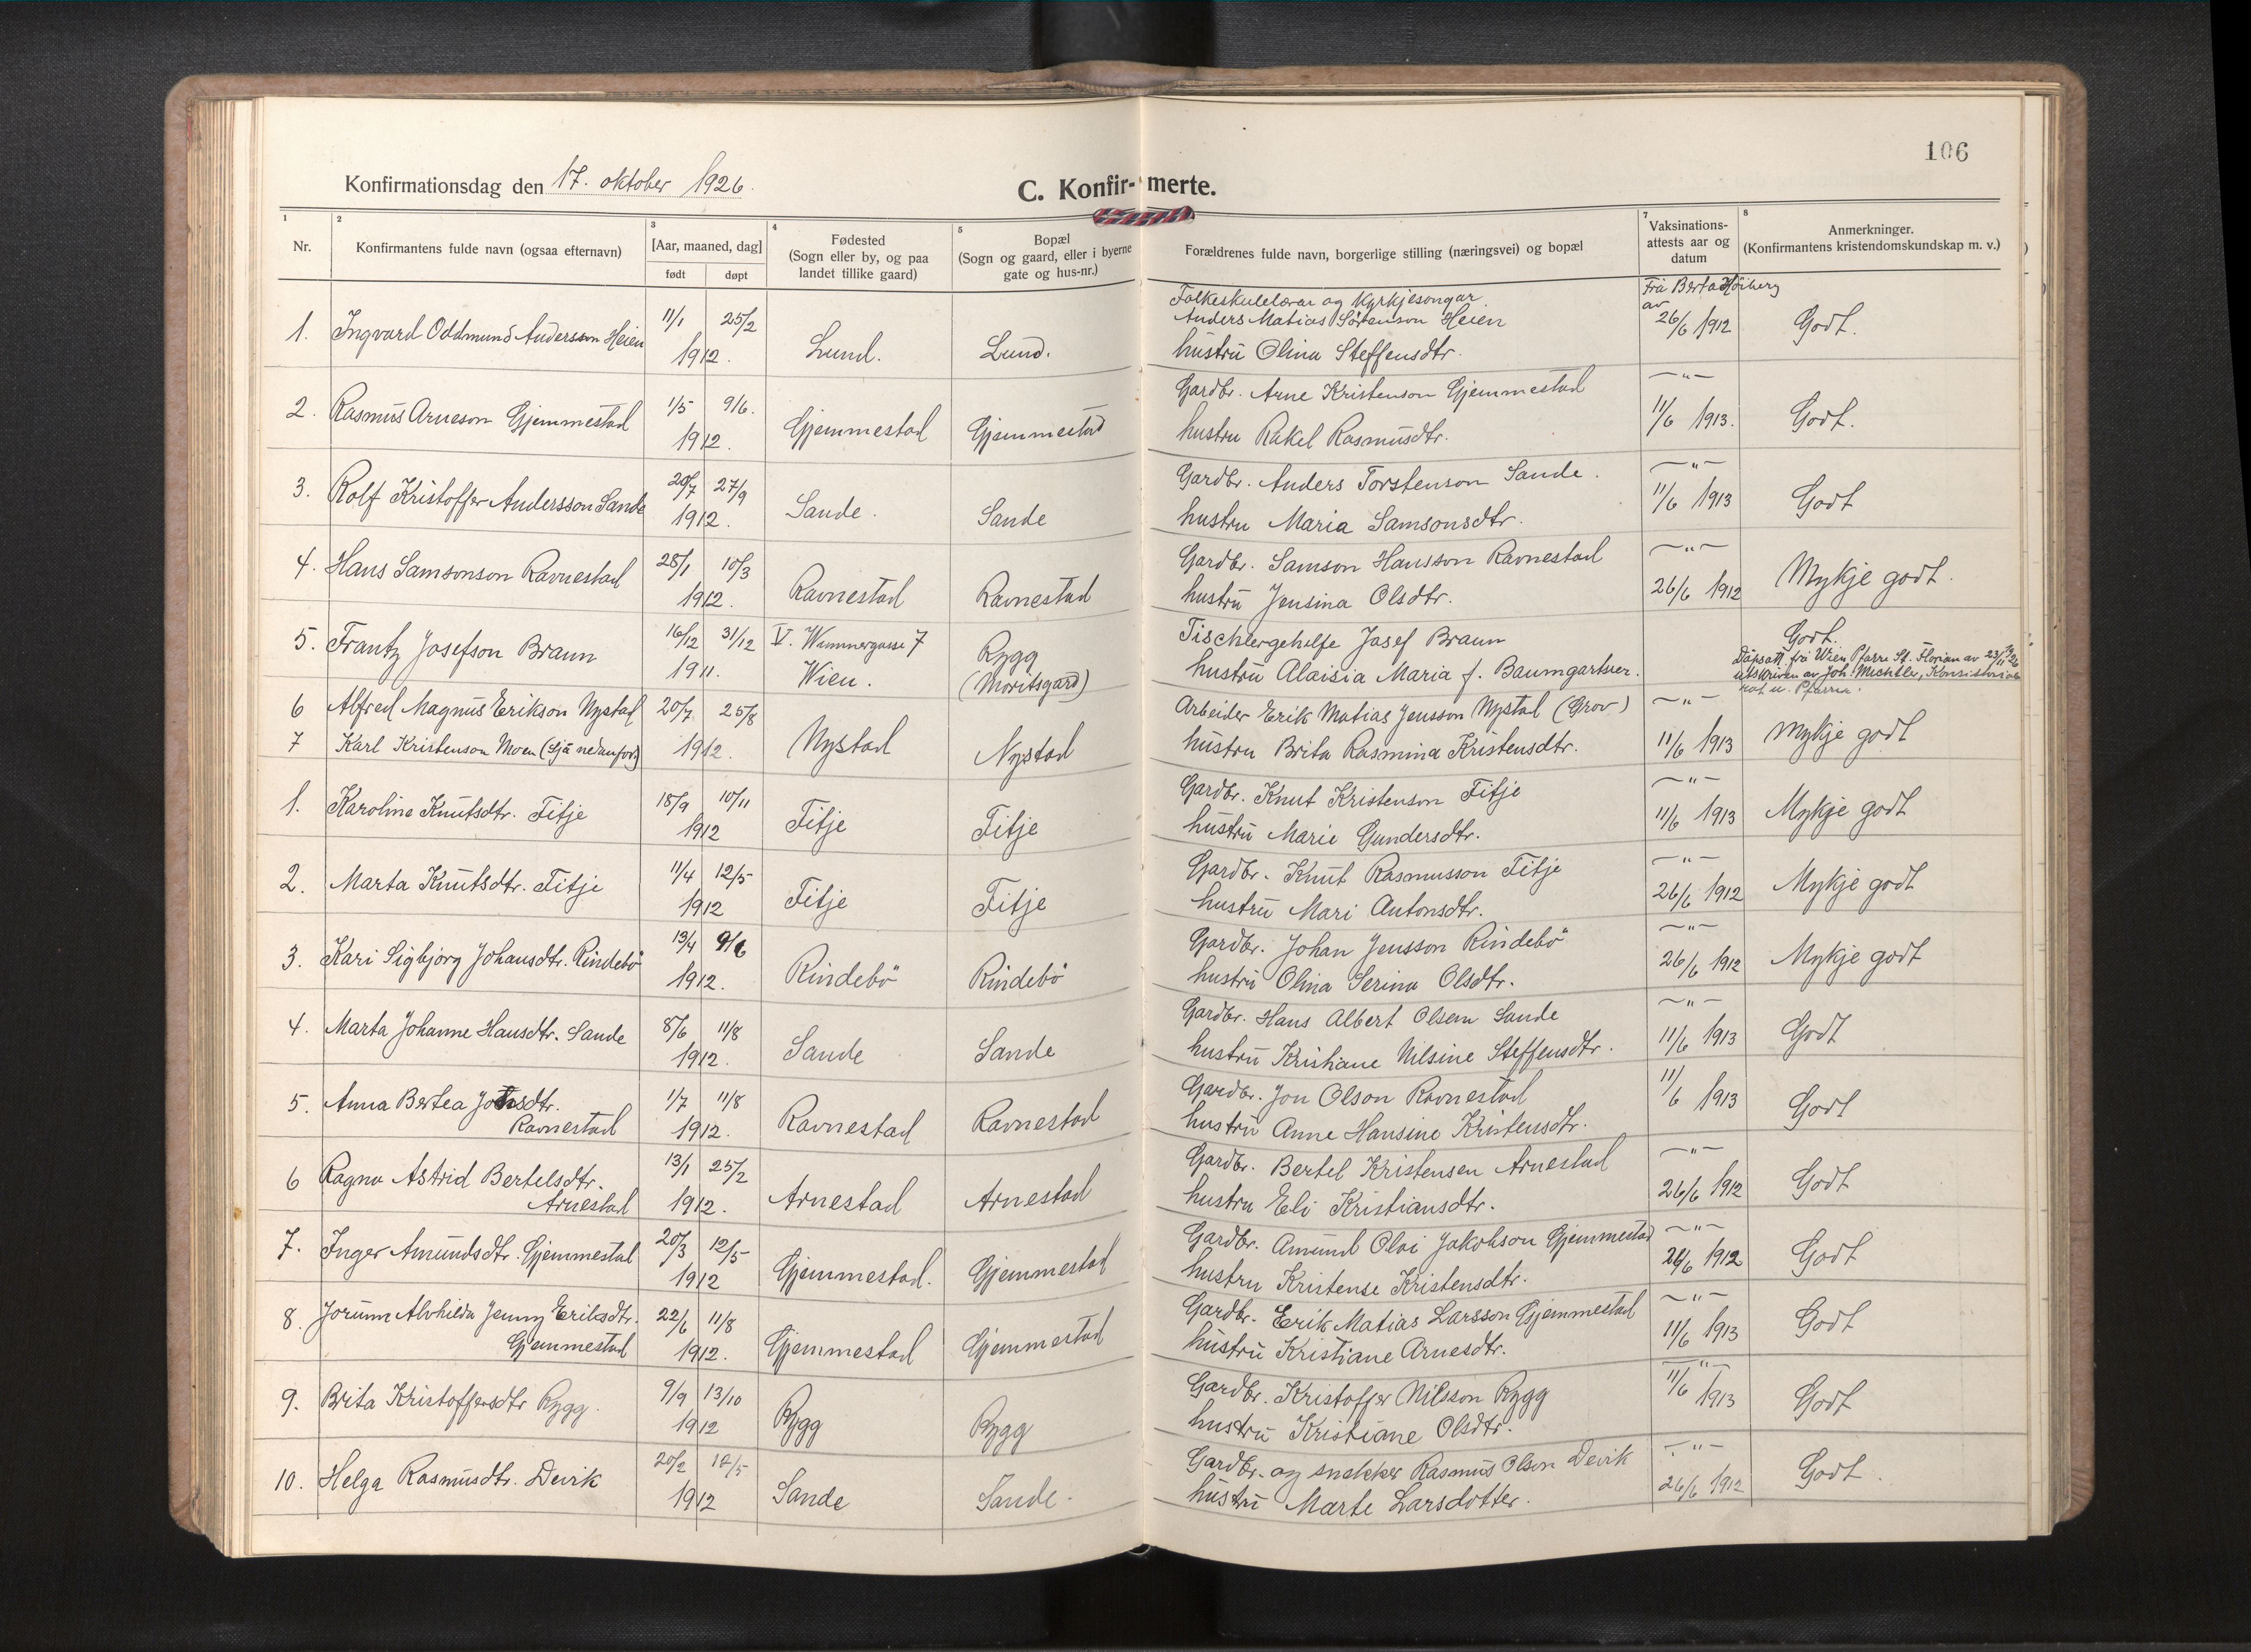 106
Konfirmationsdag den 17. oktober 1926.
C. Konfir-merte.
1 2 3 4 5 7 8
Nr.
Konfirmantens fulde navn (ogsaa efternavn)
[Aar, maaned, dag]
født døpt
Fødested
(Sogn eller by, og paa
landet tillike gaard)
Bopæl
(Sogn og gaard, eller i byerne
gate og hus-nr.)
Forældrenes fulde navn, borgerlige stilling (næringsvei) og bopæl
Vaksinations-
attests aar og
datum
Anmerkninger.
(Konfirmantens kristendomskundskap m. v.)
1. Ingvard Oddmund Andersson Heien 11/1 25/2 1912. Lund. Lund.
Folkeskulelærar og Kyrkjesongar
Anders Matias Sörenson Heien
hustru Olina Steffensdtr.
Frå Berta Höiberg
av
26/6 1912 Godt.
2. Rasmus Arneson Gjemmestad 1/5 9/6. 1912. Gjemmestad Gjemmestad
Gardbr. Arne Kristenson Gjemmestad
hustru Rakel Rasmusdtr.
—"—
11/6 1913. Godt.
3. Rolf Kristoffer Andersson Sande 20/7 27/9 1912. Sande. Sande
Gardbr. Anders Torstenson Sande.
hustru Maria Samsonsdtr.
—"—
11/6 1913 Godt
4. Hans Samsonson Ravnestad 28/1 10/3 1912. Ravnestad Ravnestad
Gardbr. Samson Hansson Ravnestad
hustru Jensina Olsdtr.
—"—
26/6 1912 Mykje godt.
5. Frantz Josefson Braun 16/12 31/12 1911. V. Wimmergasse 7
Wien.
Rygg
(Moritsgard)
Tischlergehilfe Josef Braun
hustru Aloisia Maria f. Baumgartner.
Godt.
Dåpsatt. frå Wien Pfarre St. Florian av 23/11 1926
utskriven av Joh. Michtler, Konsistorial
rat u. Pfarrer.
6 Alfred Magnus Erikson Nystad 20/7 25/8 1912. Nystad Nystad
7 Karl Kristenson Moen (sjå nedanfor)
Arbeider Erik Matias Jensson Nystad (Grov)
hustru Brita Rasmina Kristensdtr.
—"—
11/6 1913 Mykje godt
1. Karoline Knutsdtr. Fitje 18/9 10/11 1912 Fitje Fitje
Gardbr. Knut Kristenson Fitje
hustru Marie Gundersdtr.
—"—
11/6 1913 Mykje godt
2. Marta Knutsdtr. Fitje 11/4 12/5 1912 Fitje Fitje
Gardbr. Knut Rasmusson Fitje
hustru Mari Antonsdtr.
—"—
26/6 1912 Mykje godt
3. Kari Sigbjørg Johansdtr. Rindebö 13/4 9/6 1912. Rindebö Rindebö
Gardbr. Johan Jensson Rindebö
hustru Olina Serina Olsdtr.
—"—
26/6 1912 Mykje godt
4. Marta Johanne Hansdtr. Sande 8/6 11/8 1912. Sande Sande
Gardbr. Hans Albert Olsen Sande
hustru Kristiane Nilsine Steffensdtr.
—"—
11/6 1913 Godt
5. Anna Bertea Jonsdtr.
Ravnestad 1/7 11/8 1912. Ravnestad Ravnestad
Gardbr. Jon Olson Ravnestad
hustru Anne Hansine Kristensdtr.
11/6 1913 Godt
6 Ragna Astrid Bertelsdtr.
Arnestad 13/1 25/2 1912. Arnestad Arnestad
Gardbr. Bertel Kristensen Arnestad
hustru Eli Kristiansdtr.
—"—
26/6 1912 Godt
7. Inger Amundsdtr. Gjemmestad 20/3 12/5 1912 Gjemmestad. Gjemmestad
Gardbr. Amund Olai Jakobson Gjemmestad
hustru Kristense Kristensdtr.
—"—
26/6 1912 Godt
8. Jorunn Alvhilda Jenny Eriksdtr.
Gjemmestad 22/6 11/8 1912. Gjemmestad Gjemmestad
Gardbr. Erik Matias Larsson Gjemmestad
hustru Kristiane Arnesdtr.
—"—
11/6 1913 Godt
9. Brita Kristoffersdtr Rygg. 9/9 13/10 1912 Rygg Rygg
Gardbr. Kristoffer Nilsson Rygg
hustru Kristiane Olsdtr.
—"—
11/6 1913 Godt
10. Helga Rasmusdtr. Devik 20/2 12/5 1912 Sande Sande.
Gardbr. og snekker Rasmus Olson Devik
hustru Marte Larsdotter.
—"—
26/6 1912 Godt.